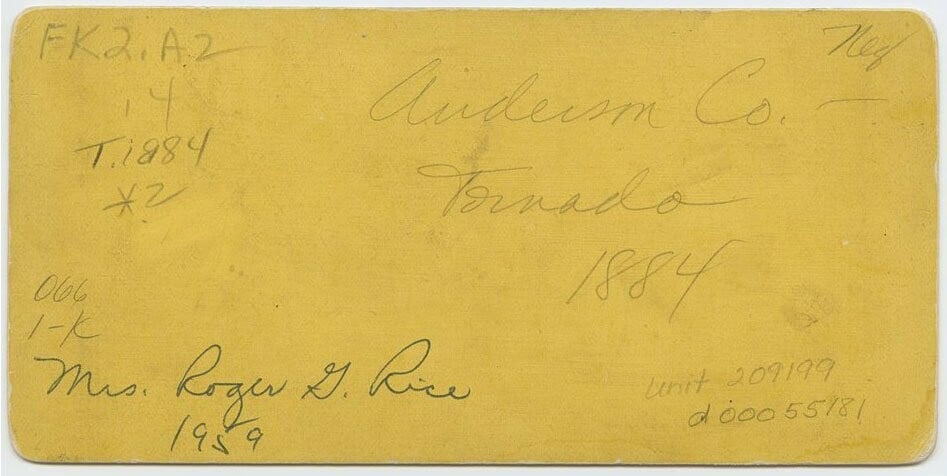 FK2.A2
14
T.1884
*2
Neg
Anderson Co. —
Tornado
1884
066
1-K
Mrs. Roger G. Rice
1959
Unit 209199
d00055181